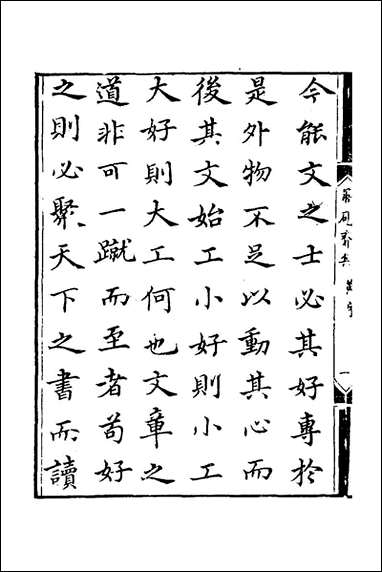 今能文之士必其好專於
是外物不足以動其心而
後其文始工小好則小工
大好則大工何也文章之
道非可一蹴而至者苟好
之則必聚天下之書而讀
一